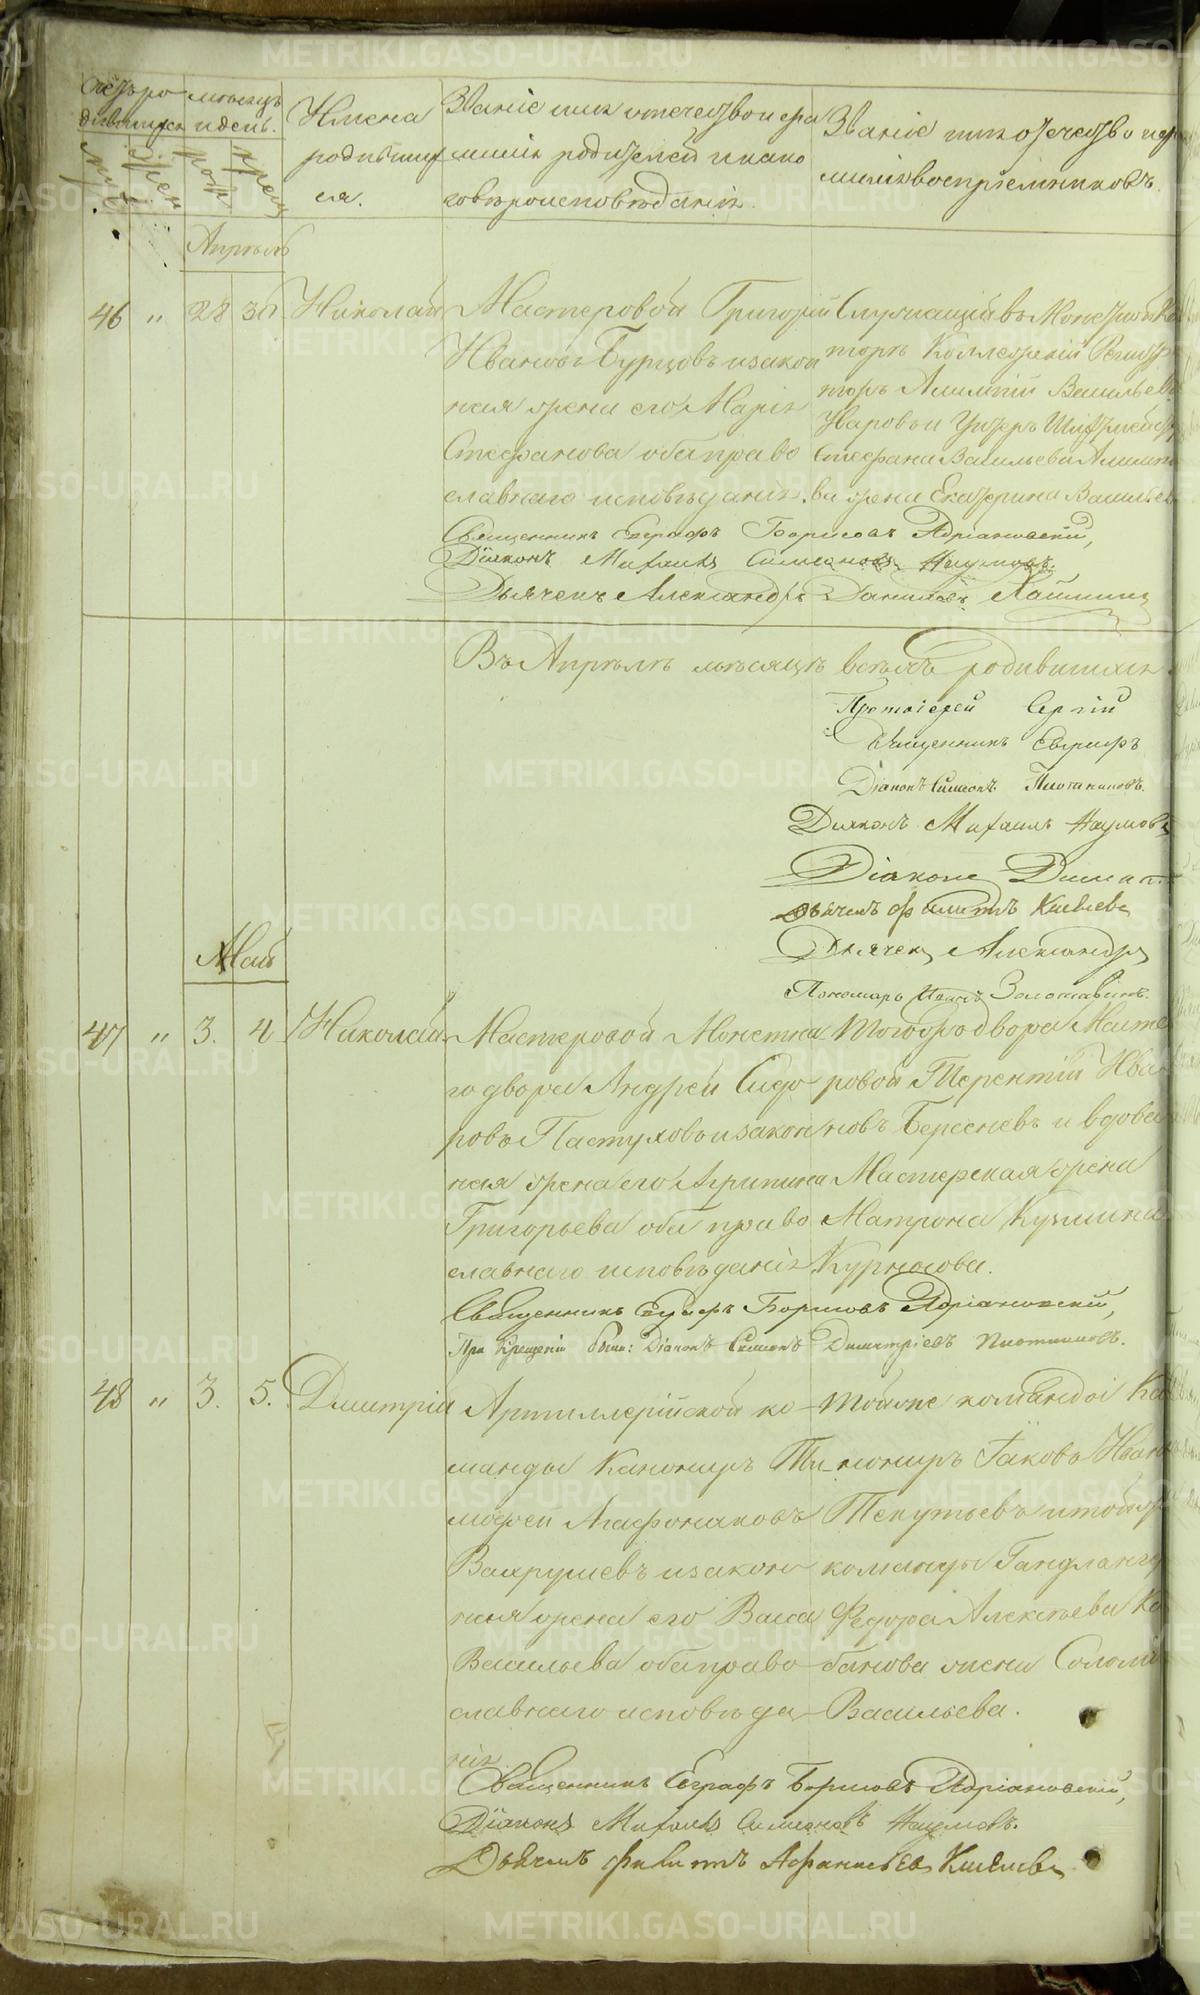 Счетъ ро
дившихся
месяцъ
и день.
Имена
родивших
ся.
Званіе имя отечество и фа
милія родителей и како
ва вѣроисповѣданія.
Званіе имя отечество и фа
милія воспріемниковъ.
Апрѣль
46 " 28 30 Николай
Мастеровой Григорій
Ивановъ Бурцовъ и закон
ная жена его Марія
Стефанова оба право
славнаго исповѣданія.
Служащій въ Монетной
торѣ Коллежскій Регистра
торъ Алимпій Васильевъ
Уваровъ и Унтеръ Шихтмейстера
Стефана Васильева Алимпі
ва жена Екатерина Васильева
Священникъ Евграфъ Борисовъ Адріановскій,
Діаконъ Михаилъ Симеоновъ Наумовъ.
Дьячекъ Александръ Даниловъ
Въ Апрѣлѣ месяцѣ всѣхъ родившихся
Протоіерей Сергій
Священникъ Евграфъ
Діаконъ Симеонъ Плотниковъ.
Діаконъ Михаилъ Наумовъ
Діаконъ Димит
Дьячекъ Филитъ Киселевъ
Дьячекъ Александръ
Пономарь Иванъ Золотавинъ.
Май
47 " 3. 4 Николай
Мастеровой Монетна
го двора Андрей Сидо
ровъ Пастуховъ и закон
ная жена его Агрипина
Григорьева оба право
славнаго исповѣданія
Тогоже двора Масте
ровой Терентій Ива
новъ Береснев и вдова
Мастерская жена
Матрона Кузмина
Курносова.
Священникъ Евграфъ Борисовъ Адріановскій,
При Крещеніи были: Діаконъ Симеонъ Димитріевъ Плотниковъ.
48 " 3. 5. Дмитрій
Артиллерійской ко
манды Канониръ Ти
мофей Агафонаковъ
Вахрушевъ и закон
ная жена его Васса
Васильева оба право
славнаго исповѣда
нія
Той же команды Ка
нониръ Іаковъ Иван
Текутьевъ и той ж
команды Гандланге
Федора Алексѣева Ка
банова жена Соломо
Васильева.
Священникъ Евграфъ Борисовъ Адріановскій,
Діаконъ Михаилъ Симеоновъ Наумовъ.
Дьячекъ Филитъ Афанасьевъ Киселевъ
METRIKI.GASO-URAL.RU